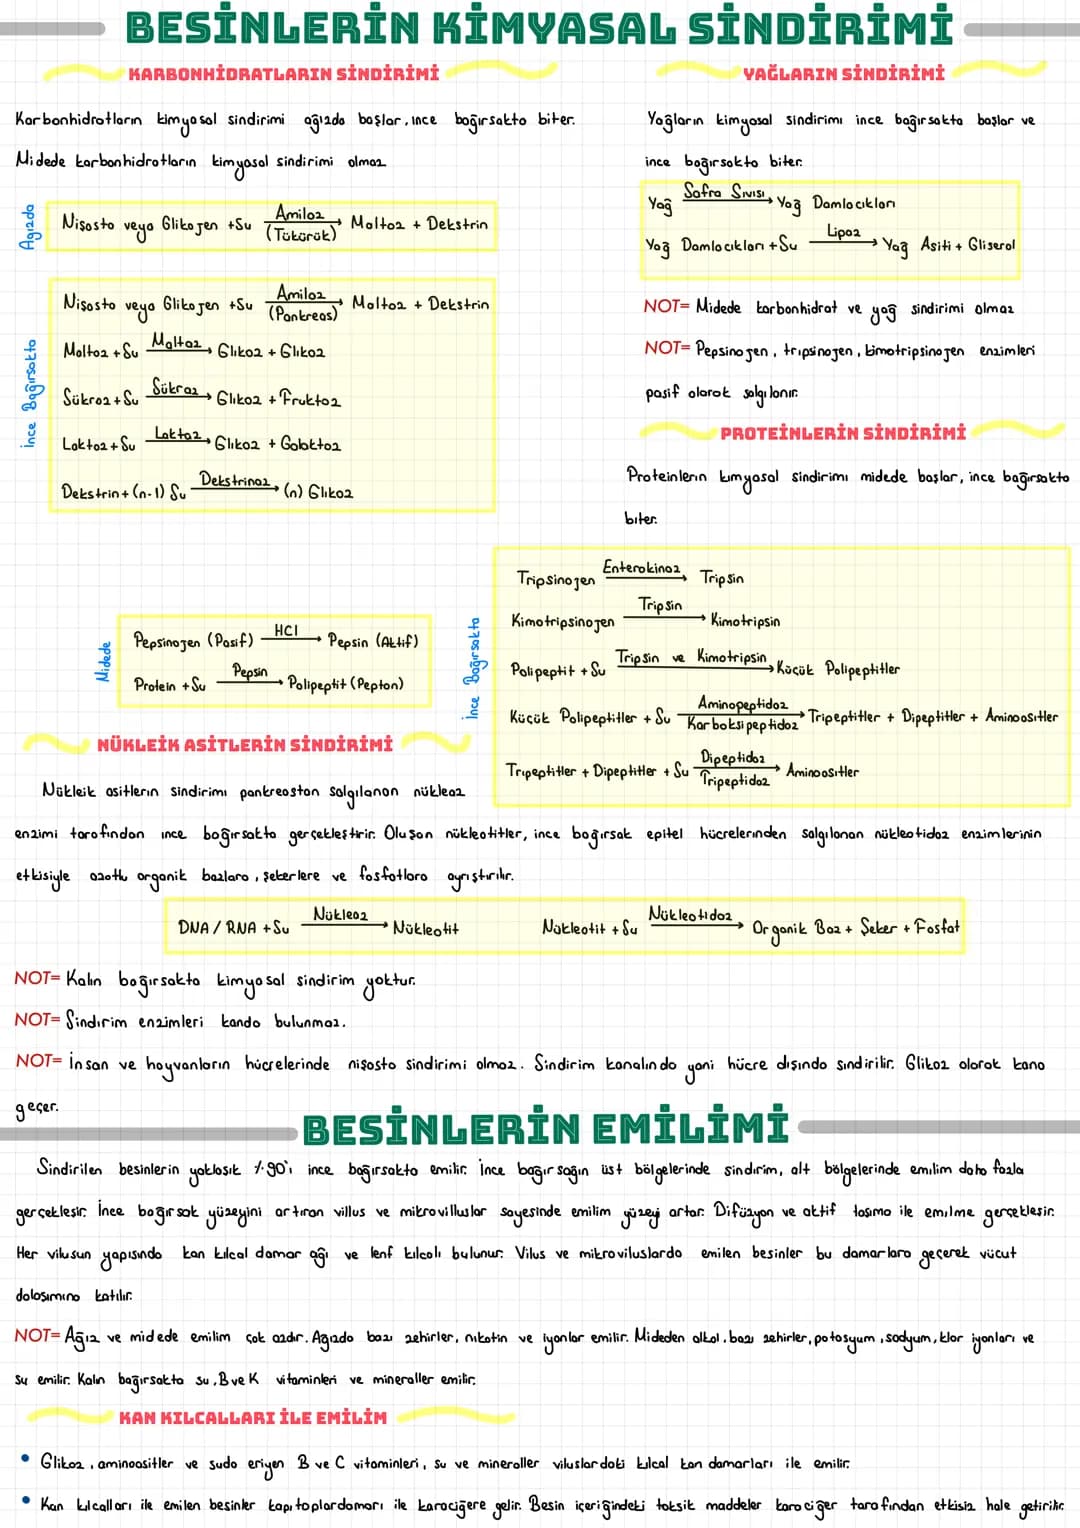 BESİNLERİN KİMYASAL SİNDİRİMİ
KARBONHİDRATLARIN SİNDİRİMİ
Karbonhidratların kimyasal sindirimi ağızda başlar, ince bağırsakta biter.
Midede karbonhidratların kimyasal sindirimi olmaz
Ağızda
Nişasta veya Glikojen +Su Amilaz (Tükürük) → Maltoz + Dekstrin
İnce Bağırsakta
Nişasta veya Glikojen +Su Amilaz (Pankreas) → Maltoz + Dekstrin
Maltoz + Su Maltaz → Glikoz + Glikoz
Sükroz + Su Sükraz → Glikoz + Fruktoz
Laktoz + Su Laktaz → Glikoz + Galaktoz
Dekstrin + (n-1) Su Dekstrinaz → (n) Glikoz
YAĞLARIN SİNDİRİMİ
Yağların kimyasal sindirimi ince bağırsakta başlar ve
ince bağırsakta biter.
Yağ Safra Sıvısı → Yağ Damlacıkları
Yağ Damlacıkları + Su Lipaz → Yağ Asiti + Gliserol
NOT= Midede karbonhidrat ve yağ sindirimi olmaz
NOT= Pepsinojen, tripsinojen, kimotripsinojen enzimleri
pasif olarak salgılanır.
PROTEİNLERİN SİNDİRİMİ
Proteinlerin kimyasal sindirimi midede başlar, ince bağırsakta
biter.
Midede
Pepsinojen (Pasif) HCl → Pepsin (Aktif)
Protein + Su Pepsin → Polipeptit (Pepton)
İnce Bağırsakta
Tripsinojen Enterokinaz → Tripsin
Kimotripsinojen Tripsin → Kimotripsin
Polipeptit + Su Tripsin ve Kimotripsin → Küçük Polipeptitler
Küçük Polipeptitler + Su Aminopeptidaz Karboksipeptidaz → Tripeptitler + Dipeptitler + Aminoasitler
Tripeptitler + Dipeptitler + Su Dipeptidaz Tripeptidaz → Aminoasitler
NÜKLEİK ASİTLERİN SİNDİRİMİ
Nükleik asitlerin sindirimi pankreastan salgılanan nükleaz
enzimi tarafından ince bağırsakta gerçekleştirir. Oluşan nükleotitler, ince bağırsak epitel hücrelerinden salgılanan nükleotidaz enzimlerinin
etkisiyle azotlu organik bazlara, şekerlere ve fosfatlara ayrıştırılır.
DNA / RNA + Su Nükleaz → Nükleotit
Nükleotit + Su Nükleotidaz → Organik Baz + Şeker + Fosfat
NOT= Kalın bağırsakta kimyasal sindirim yoktur.
NOT= Sindirim enzimleri kanda bulunmaz.
NOT= İnsan ve hayvanların hücrelerinde nişasta sindirimi olmaz. Sindirim kanalında yani hücre dışında sindirilir. Glikoz olarak kana
geçer.
BESİNLERİN EMİLİMİ
Sindirilen besinlerin yaklaşık %90'ı ince bağırsakta emilir. İnce bağırsağın üst bölgelerinde sindirim, alt bölgelerinde emilim daha fazla
gerçekleşir. İnce bağırsak yüzeyini artıran villus ve mikrovilluslar sayesinde emilim yüzeyi artar. Difüzyon ve aktif taşıma ile emilme gerçekleşir.
Her vilusun yapısında kan kılcal damar ağı ve lenf kılcalı bulunur. Vilus ve mikroviluslarda emilen besinler bu damarlara geçerek vücut
dolaşımına katılır.
NOT= Ağız ve midede emilim çok azdır. Ağızda bazı zehirler, nikotin ve iyonlar emilir. Mideden alkol, bazı zehirler, potasyum, sodyum, klor iyonları ve
su emilir. Kalın bağırsakta su, B ve K vitaminleri ve mineraller emilir.
KAN KILCALLARI İLE EMİLİM
• Glikoz, aminoasitler ve suda eriyen B ve C vitaminleri, su ve mineraller viluslardaki kılcal kan damarları ile emilir.
• Kan kılcalları ile emilen besinler kapı toplardamarı ile karaciğere gelir. Besin içeriğindeki toksik maddeler karaciğer tarafından etkisiz hale getirilir.